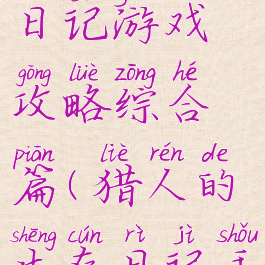 日记游戏
gōng lüè zōng hé
攻略综合
piān liè rén de
篇(猎人的
shēng cún rì jì shǒu
生存日记手